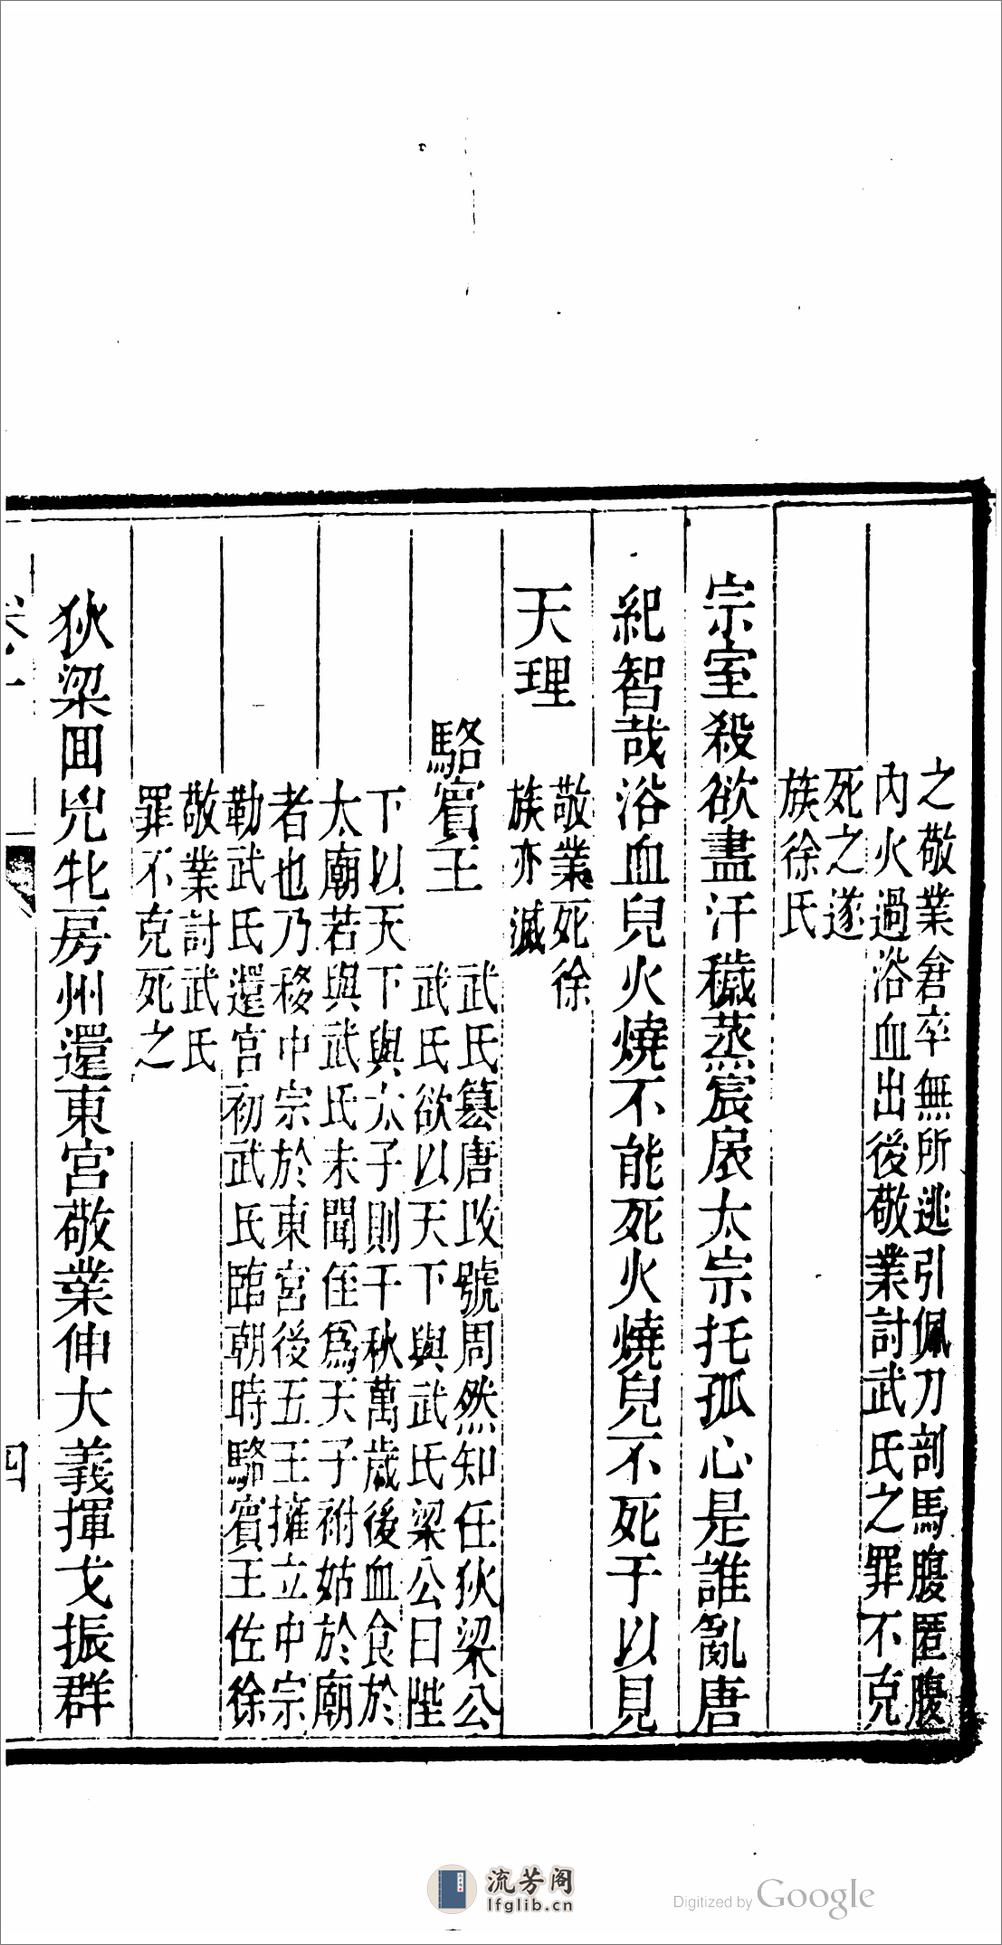 之敬業倉卒無所逃引佩刀剖馬腹匿腹
內火過浴血出後敬業討武氏之罪不克
死之遂
族徐氏
宗室殺欲盡汗穢蒸宸扆太宗托孤心是誰亂唐
紀智哉浴血兒火燒不能死火燒兒不死于以見
天理
敬業死徐
族亦滅
駱賓王
武氏篡唐改號周然知任狄梁公
武氏欲以天下與武氏梁公曰陛
下以天下與太子則千秋萬歲後血食於
太廟若與武氏未聞侄為天子祔姑於廟
者也乃移中宗於東宮後五王擁立中宗
勒武氏還宮初武氏臨朝時駱賓王佐徐
敬業討武氏
罪不克死之
狄梁囬兕牝房州還東宮敬業伸大義揮戈振群
四
流芳阁
lfglib.cn
Digitized by Google